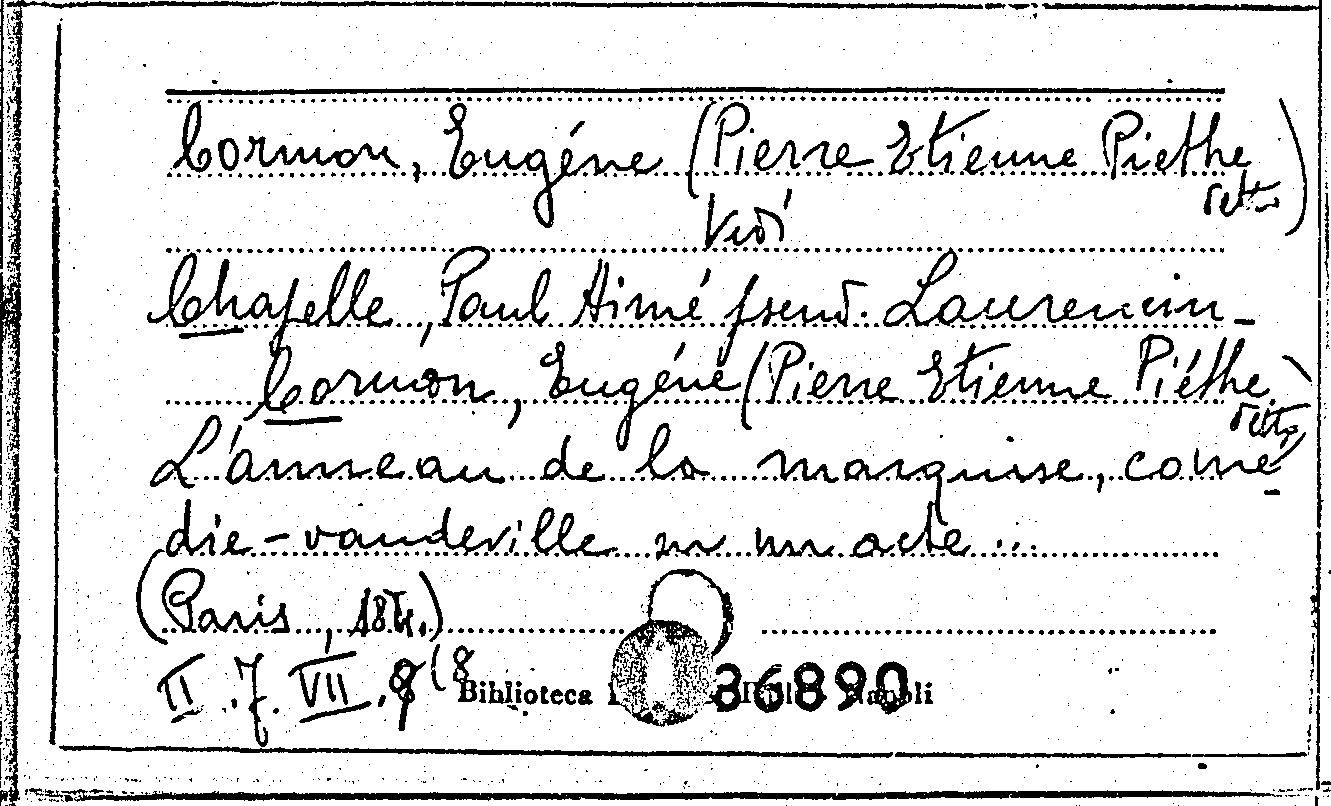 Cormon, Eugéne (Pierre Etienne Piethe
Vedi
Chapelle, Paul Aimé pseud. Laurencin -
Cormon, Eugéné (Pierre Etienne Piéthe
L'anneau de la marquise, comé-
die-vaudeville en un acte...
(Paris, 18
II. 7. VII. 9 (8
Biblioteca
36890
Napoli